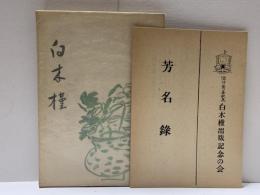 白木槿
白木槿出版記念の会
芳名錄